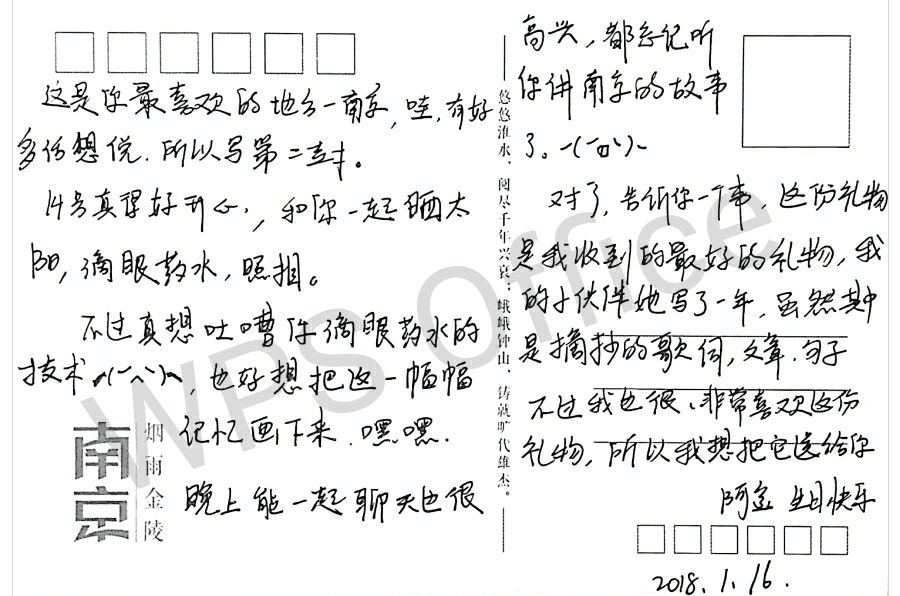 这是你最喜欢的地方一南京,哇,有好
多话想说.所以写第二封。
14号真得好开心,和你一起晒太
阳,滴眼药水,照相。
不过真想吐嘈你滴眼药水的
技术,也好想把这一幅幅
记忆画下来.嘿嘿.
晚上能一起聊天也很
南京
烟雨金陵
悠悠淮水、阅尽千年兴衰;峨峨钟山、铸就旷代雄杰。
高兴,都忘记听
你讲南京的故事
了。
对了,告诉你一个事,这份礼物
是我收到的最好的礼物,我
的小伙伴她写了一年,虽然其中
是摘抄的歌词,文章.句子
不过我也很、非常喜欢这份
礼物,所以我想把它送给你
阿金 生日快乐
2018.1.16.
WPS Office